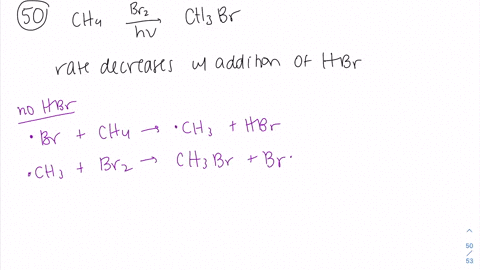 50 CH4 Br2 hν CH3Br
rate decreases w addition of HBr
no HBr
·Br + CH4 → ·CH3 + HBr
·CH3 + Br2 → CH3Br + Br·
50
/
53